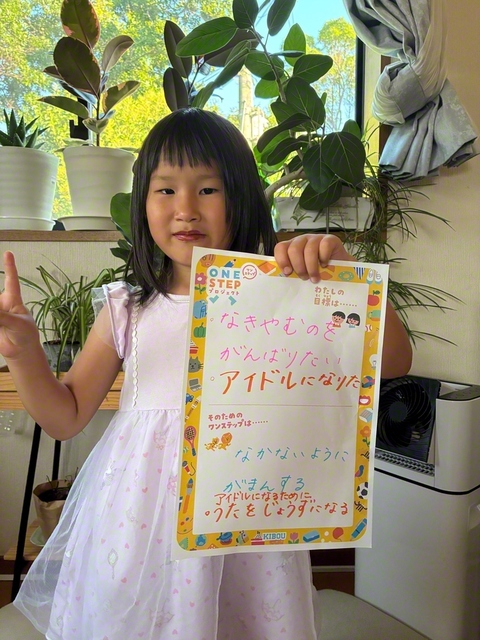 ONE
STEP
プロジェクト
わたしの
目標は……
・なきやむのを
がんばりたい
・アイドルになりた
そのための
ワンステップは……
なかないように
がまんする
アイドルになるために
・うたをじょうずになる
KIBOU